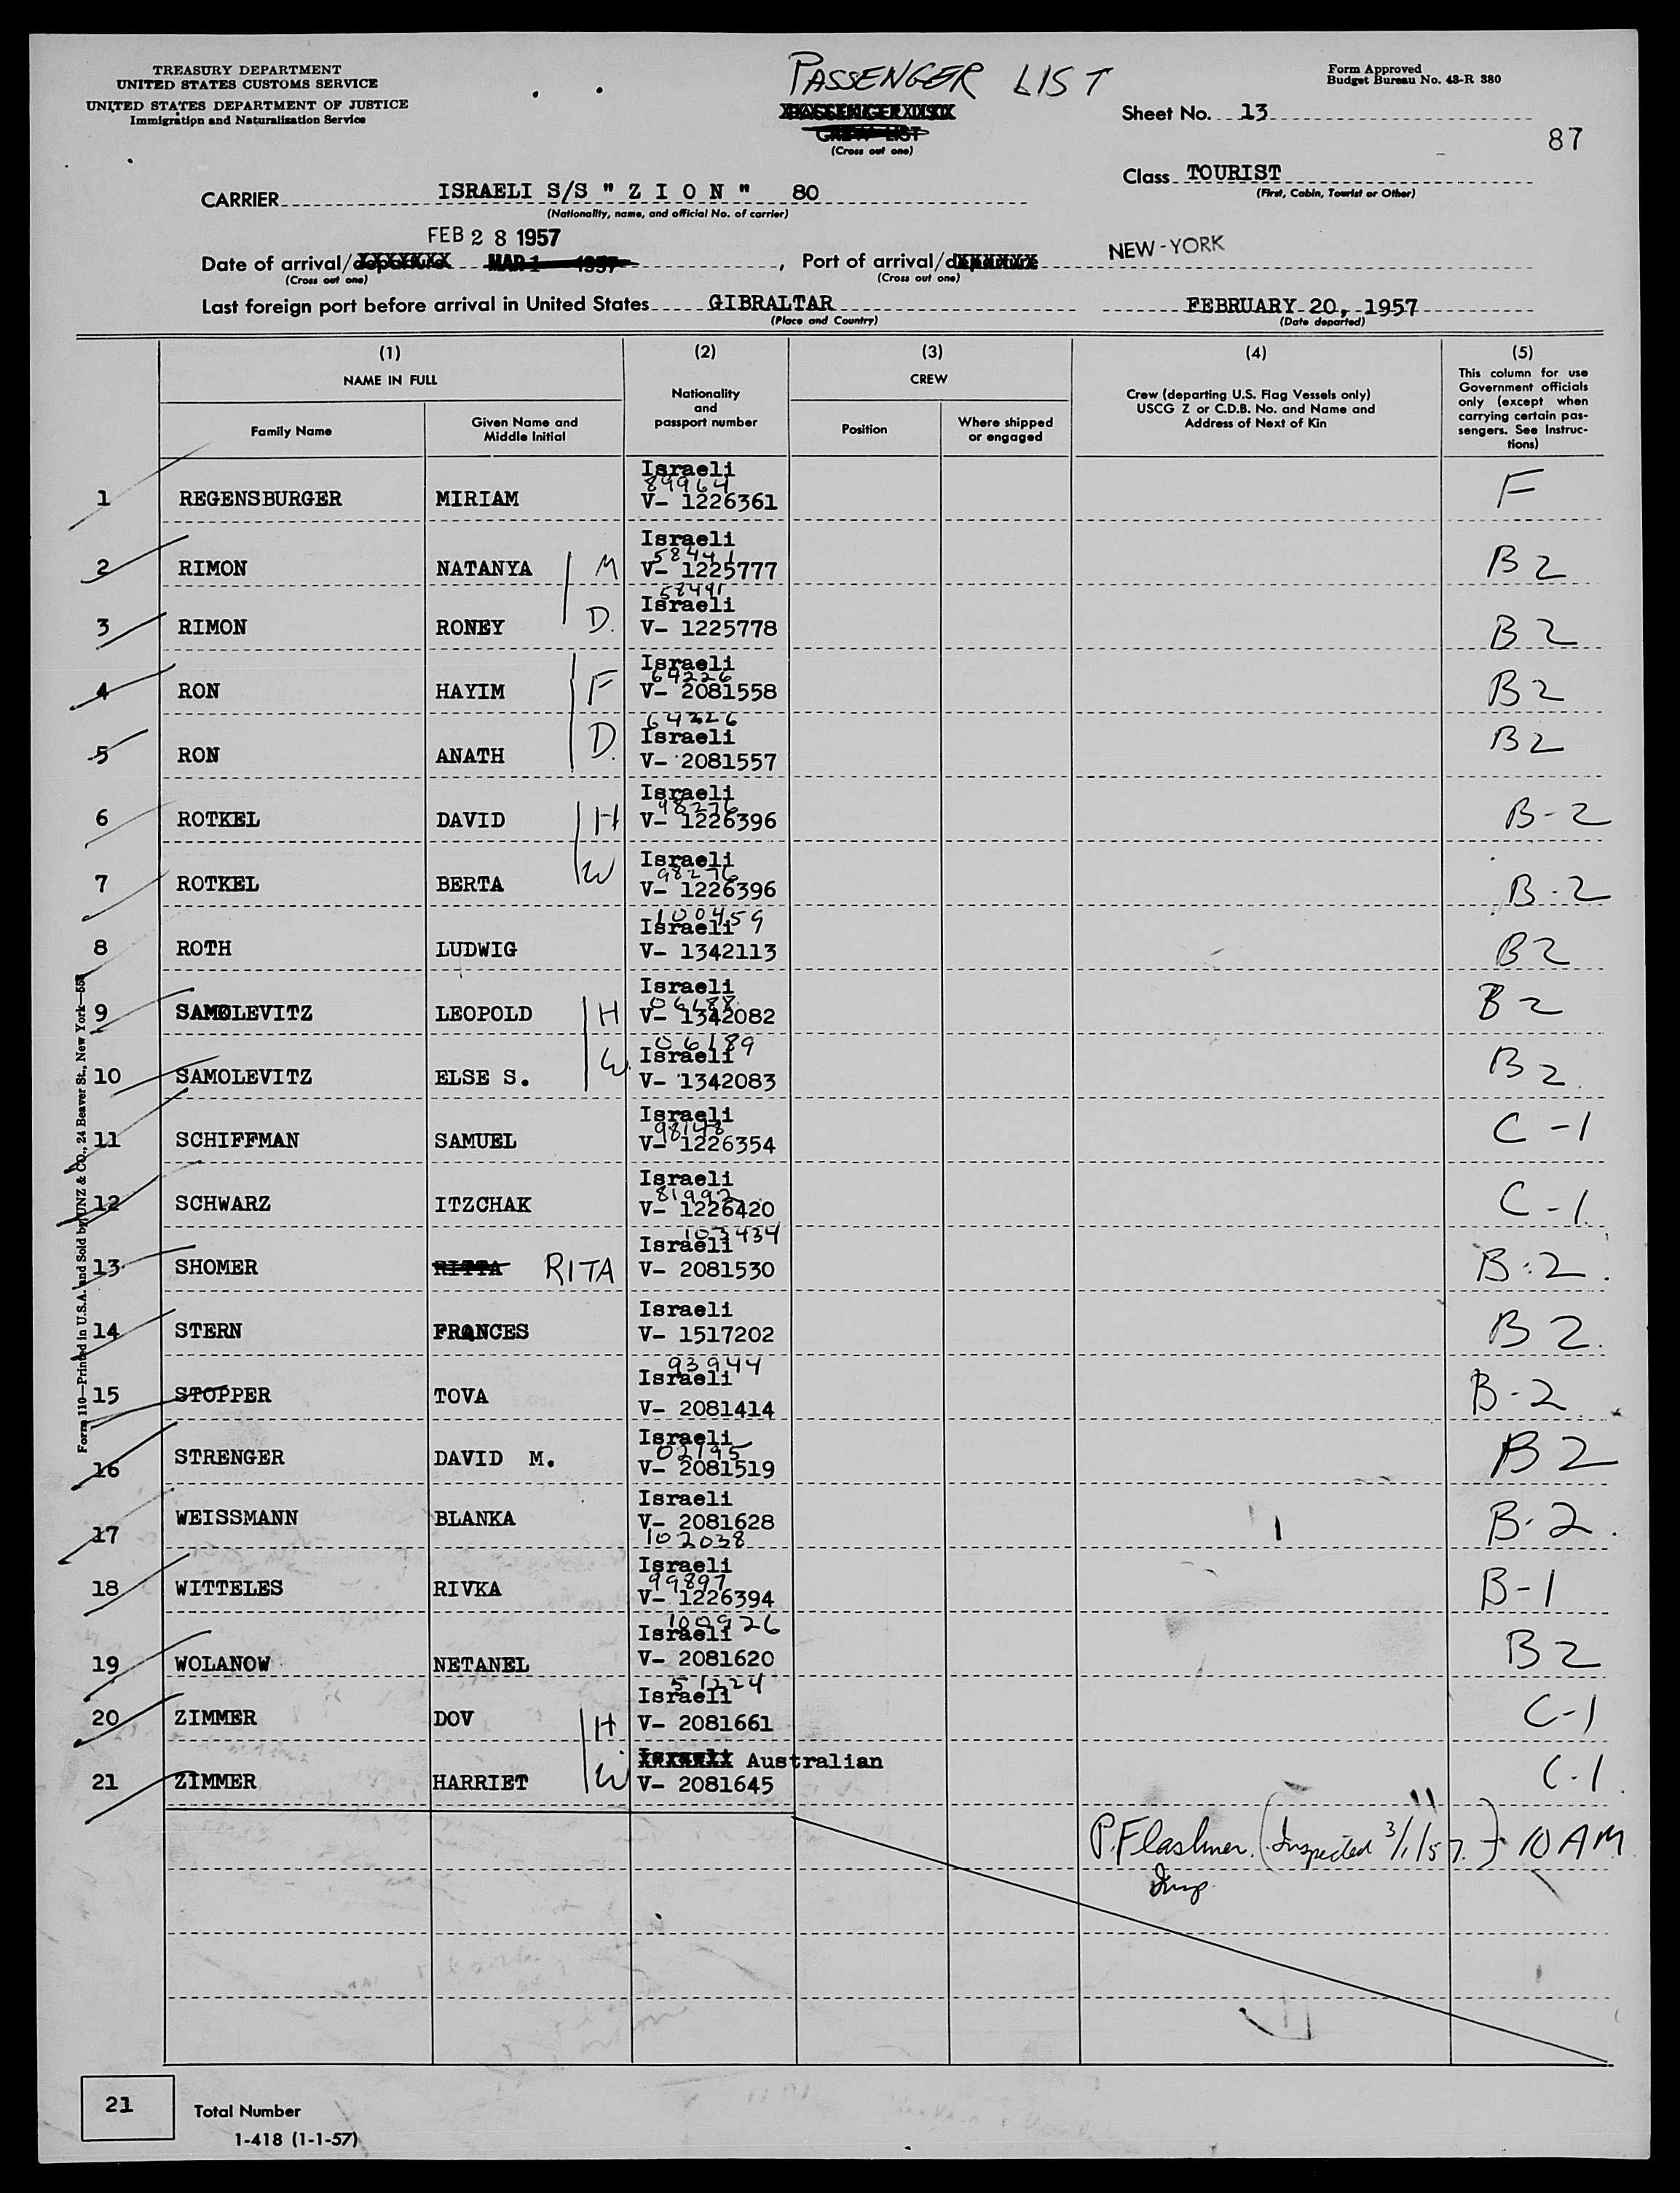 TREASURY DEPARTMENT
UNITED STATES CUSTOMS SERVICE
UNITED STATES DEPARTMENT OF JUSTICE
Immigration and Naturalization Service
PASSENGER LIST
PASSENGER LIST
CREW LIST
(Cross out one)
Form Approved
Budget Bureau No. 43-R 380
Sheet No. 13
87
Class TOURIST
(First, Cabin, Tourist or Other)
CARRIER ISRAELI S/S " Z I O N " 80
(Nationality, name, and official No. of carrier)
FEB 28 1957
Date of arrival/departure MAR 1 1957, Port of arrival/departure NEW-YORK
(Cross out one) (Cross out one)
Last foreign port before arrival in United States GIBRALTAR FEBRUARY 20, 1957
(Place and Country) (Date departed)
(1) (2) (3) (4) (5)
NAME IN FULL
Family Name
Given Name and Middle Initial
Nationality and passport number
CREW
Position
Where shipped or engaged
Crew (departing U.S. Flag Vessels only)
USCG Z or C.D.B. No. and Name and
Address of Next of Kin
This column for use
Government officials
only (except when
carrying certain pas-
sengers. See Instruc-
tions)
1 REGENSBURGER MIRIAM Israeli 89964 V- 1226361 F
2 RIMON NATANYA M Israeli 58441 V- 1225777 B2
3 RIMON RONEY D. 58441 Israeli V- 1225778 B2
4 RON HAYIM F Israeli 64226 V- 2081558 B2
5 RON ANATH D. 64226 Israeli V- 2081557 B2
6 ROTKEL DAVID H Israeli 98276 V- 1226396 B-2
7 ROTKEL BERTA W Israeli 98276 V- 1226396 B-2
8 ROTH LUDWIG 100459 Israeli V- 1342113 B2
9 SAMOLEVITZ LEOPOLD H Israeli 06188 V- 1342082 B2
10 SAMOLEVITZ ELSE S. W. 06189 Israeli V- 1342083 B2
11 SCHIFFMAN SAMUEL Israeli 98148 V- 1226354 C-1
12 SCHWARZ ITZCHAK Israeli 81992 V- 1226420 C-1
13 SHOMER RITTA RITA 103434 Israeli V- 2081530 B-2
14 STERN FRANCES Israeli V- 1517202 B2
15 STOPPER TOVA 93944 Israeli V- 2081414 B-2
16 STRENGER DAVID M. Israeli 02195 V- 2081519 B2
17 WEISSMANN BLANKA Israeli V- 2081628 102038 B-2
18 WITTELES RIVKA Israeli 99897 V- 1226394 B-1
19 WOLANOW NETANEL Israeli V- 2081620 B2
20 ZIMMER DOV H 51224 Israeli V- 2081661 C-1
21 ZIMMER HARRIET W Israeli Australian V- 2081645 C-1
P. Flashner. (Inspected 3/1/57.) 10 AM
Insp.
Form 110—Printed in U.S.A. and Sold by UNZ & CO., 24 Beaver St., New York—
21
Total Number
1-418 (1-1-57)